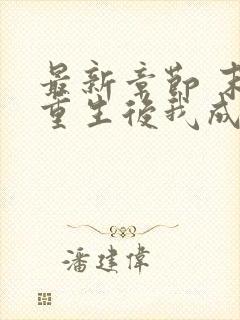 最新章節 末
重生後我成
潘建偉